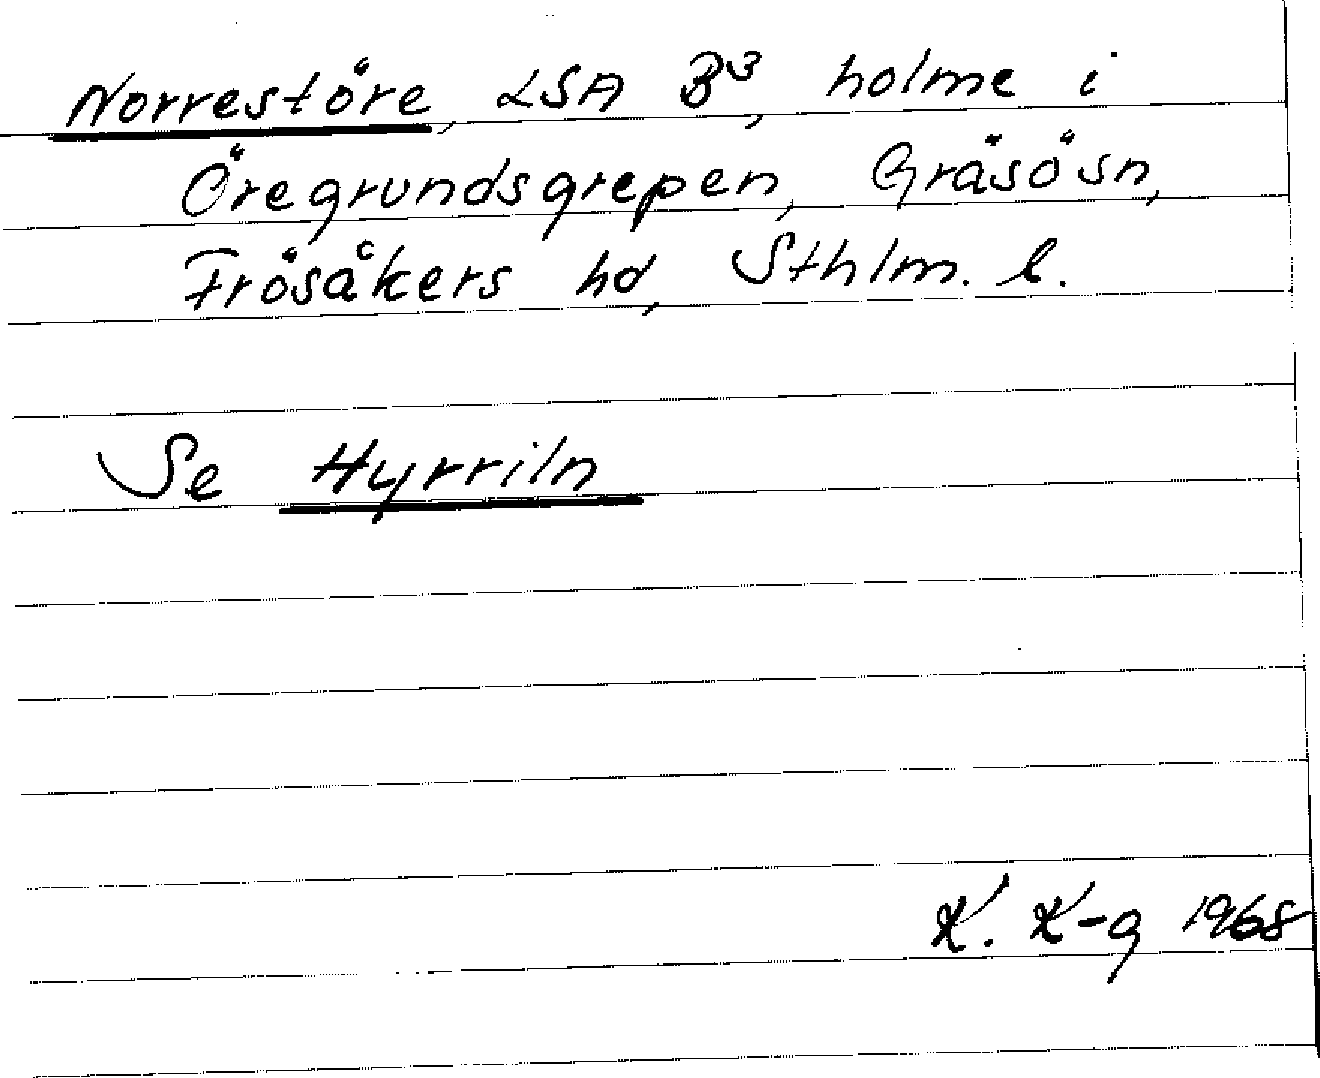 Norrestöre, LSA B³, holme i
Öregrundsgrepen, Gräsösn,
Frösåkers hd, Sthlm. l.
Se Hyrriln
K. K-g 1968